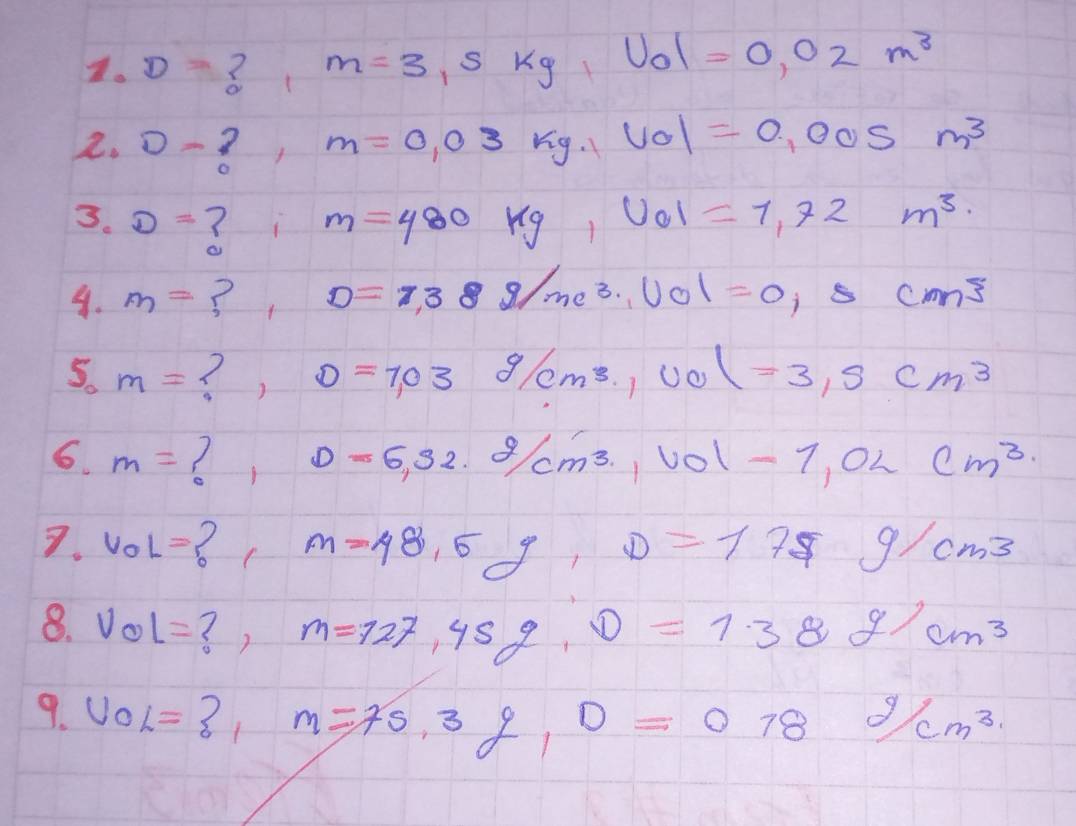 1. D = ? , m = 3,5 Kg , Vol = 0,02 m³
2. D - ? , m = 0,03 Kg. , Vol = 0,005 m³
3. D = ? ; m = 480 Kg , Vol = 1,72 m³.
4. m = ? , D = 1,38 g/mc³. , Vol = 0, 5 cm³
5. m = ? , D = 1,03 g/cm³. , Vol = 3,5 cm³
6. m = ? , D = 6,32. g/cm³. , Vol - 1,02 cm³.
7. VoL = ? , m = 48,6 g , D = 175 g/cm3
8. VoL = ? , m = 127,45 g , D = 1.38 g/cm³
9. VoL = ? , m = 75,3 g , D = 0 78 g/cm³.